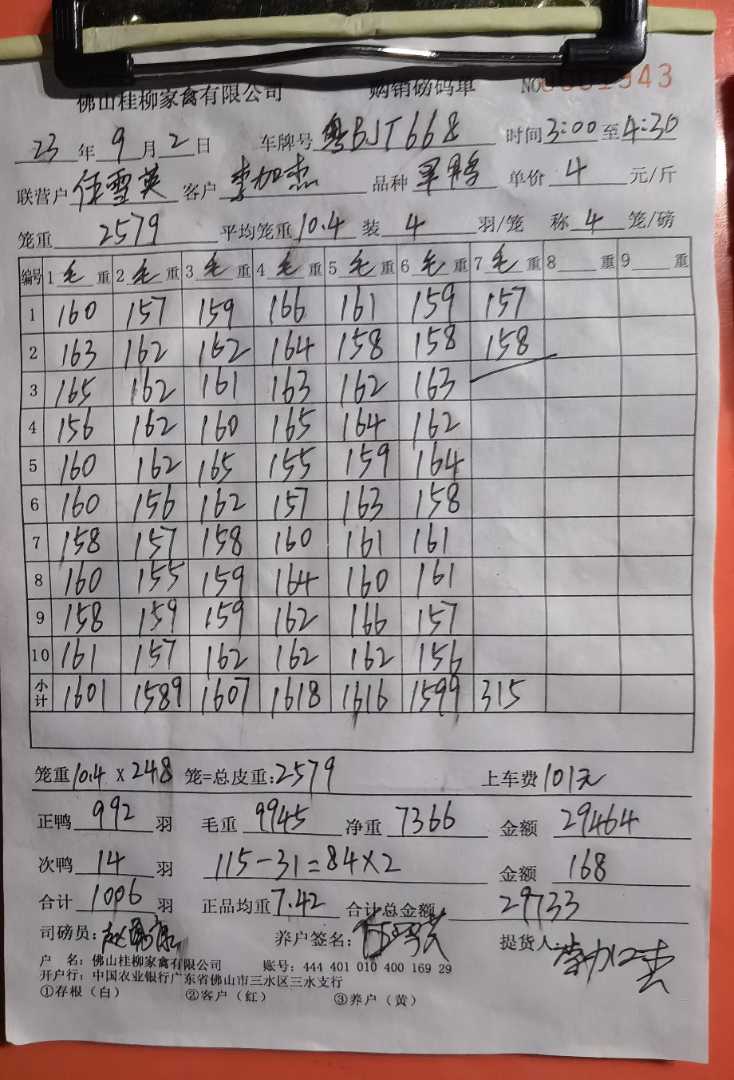 佛山桂柳家禽有限公司 购销磅码单 NO 0001943
23 年 9 月 2 日 车牌号 粤BJT668 时间 3:00 至 4:30
联营户 任雪英 客户 李加杰 品种 单价 4 元/斤
笼重 2579 平均笼重 10.4 装 4 羽/笼 称 4 笼/磅
编号 1 毛 重 2 毛 重 3 毛 重 4 毛 重 5 毛 重 6 毛 重 7 毛 重 8 重 9 重
1 160 157 159 166 161 159 157
2 163 162 162 164 158 158 158
3 165 162 161 163 162 163
4 156 162 160 165 164 162
5 160 162 165 155 159 164
6 160 156 162 157 163 158
7 158 157 158 160 161 161
8 160 155 159 164 160 161
9 158 159 159 162 166 157
10 161 157 162 162 162 156
小计 1601 1589 1607 1618 1616 1599 315
笼重 10.4 x 248 笼=总皮重: 2579 上车费 101元
正鸭 992 羽 毛重 9945 净重 7366 金额 29464
次鸭 14 羽 115-31=84×2 金额 168
合计 1006 羽 正品均重 7.42 合计总金额 29733
司磅员: 养户签名: 提货人:
户 名: 佛山桂柳家禽有限公司 账号: 444 401 010 400 169 29
开户行: 中国农业银行广东省佛山市三水区三水支行
①存根（白） ②客户（红） ③养户（黄）